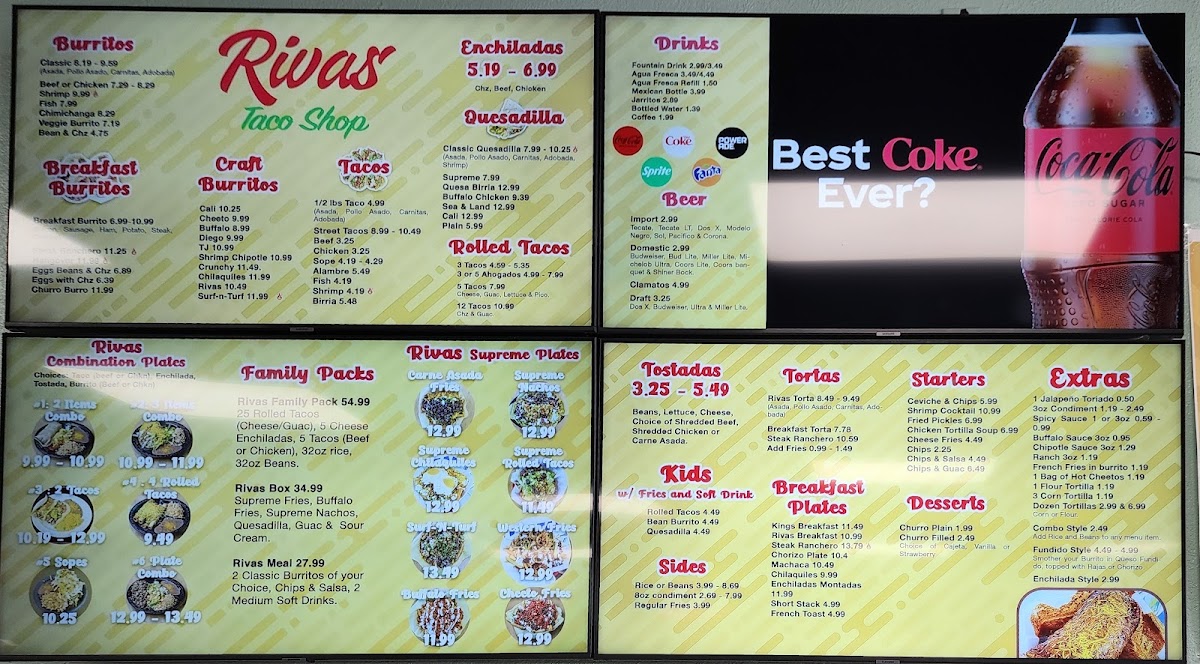 Burritos
Classic 8.19 - 9.59
(Asada, Pollo Asado, Carnitas, Adobada)
Beef or Chicken 7.29 - 8.29
Shrimp 9.99
Fish 7.99
Chimichanga 8.29
Veggie Burrito 7.19
Bean & Chz 4.75
Rivas
Taco Shop
Enchiladas
5.19 - 6.99
Chz, Beef, Chicken
Quesadilla
Classic Quesadilla 7.99 - 10.25
(Asada, Pollo Asado, Carnitas, Adobada,
Shrimp)
Supreme 7.99
Quesa Birria 12.99
Buffalo Chicken 9.39
Sea & Land 12.99
Cali 12.99
Plain 5.99
Breakfast
Burritos
Breakfast Burrito 6.99-10.99
Sausage, Ham, Potato, Steak,
11.25
Eggs Beans & Chz 6.89
Eggs with Chz 6.39
Churro Burro 11.99
Craft
Burritos
Cali 10.25
Cheeto 9.99
Buffalo 8.99
Diego 9.99
TJ 10.99
Shrimp Chipotle 10.99
Crunchy 11.49.
Chilaquiles 11.99
Rivas 10.49
Surf-n-Turf 11.99
Tacos
1/2 lbs Taco 4.99
(Asada, Pollo Asado, Carnitas,
Adobada)
Street Tacos 8.99 - 10.49
Beef 3.25
Chicken 3.25
Sope 4.19 - 4.29
Alambre 5.49
Fish 4.19
Shrimp 4.19
Birria 5.48
Rolled Tacos
3 Tacos 4.59 - 5.35
3 or 5 Ahogados 4.99 - 7.99
5 Tacos 7.99
Cheese, Guac, Lettuce & Pico.
12 Tacos 10.99
Chz & Guac.
Drinks
Fountain Drink 2.99/3.49
Agua Fresca 3.49/4.49
Agua Fresca Refill 1.50
Mexican Bottle 3.99
Jarritos 2.89
Bottled Water 1.39
Coffee 1.99
Coca-Cola
Coke
POWER
ADE
Sprite
Fanta
Beer
Import 2.99
Tecate, Tecate LT, Dos X, Modelo
Negro, Sol, Pacifico & Corona.
Domestic 2.99
Budweiser, Bud Lite, Miller Lite, Mi-
chelob Ultra, Coors Lite, Coors ban-
quet & Shiner Bock.
Clamatos 4.99
Draft 3.25
Dos X, Budweiser, Ultra & Miller Lite.
Best Coke
Ever?
Coca-Cola
ZERO SUGAR
Rivas
Combination Plates
Choices: Taco (beef or Chkn), Enchilada,
Tostada, Burrito (Beef or Chkn).
#1: 2 Items
Combo
9.99 - 10.99
#2: 3 Items
Combo
10.99 - 11.99
#3: 2 Tacos
10.19 - 12.99
#4: 4 Rolled
Tacos
9.49
#5 Sopes
10.25
#6 Plate
Combo
12.99 - 13.49
Family Packs
Rivas Family Pack 54.99
25 Rolled Tacos
(Cheese/Guac), 5 Cheese
Enchiladas, 5 Tacos (Beef
or Chicken), 32oz rice,
32oz Beans.
Rivas Box 34.99
Supreme Fries, Buffalo
Fries, Supreme Nachos,
Quesadilla, Guac & Sour
Cream.
Rivas Meal 27.99
2 Classic Burritos of your
Choice, Chips & Salsa, 2
Medium Soft Drinks.
Rivas Supreme Plates
Carne Asada
Fries
12.99
Supreme
Nachos
12.99
Supreme
Chilaquiles
12.99
Supreme
Rolled Tacos
11.49
Surf-N-Turf
13.49
Western Fries
12.99
Buffalo Fries
11.99
Cheeto Fries
12.99
Tostadas
3.25 - 5.49
Beans, Lettuce, Cheese,
Choice of Shredded Beef,
Shredded Chicken or
Carne Asada.
Kids
w/ Fries and Soft Drink
Rolled Tacos 4.49
Bean Burrito 4.49
Quesadilla 4.49
Sides
Rice or Beans 3.99 - 8.69
8oz condiment 2.69 - 7.99
Regular Fries 3.99
Tortas
Rivas Torta 8.49 - 9.49
(Asada, Pollo Asado, Carnitas, Ado-
bada)
Breakfast Torta 7.78
Steak Ranchero 10.59
Add Fries 0.99 - 1.49
Breakfast
Plates
Kings Breakfast 11.49
Rivas Breakfast 10.99
Steak Ranchero 13.79
Chorizo Plate 10.4
Machaca 10.49
Chilaquiles 9.99
Enchiladas Montadas
11.99
Short Stack 4.99
French Toast 4.99
Starters
Ceviche & Chips 5.99
Shrimp Cocktail 10.99
Fried Pickles 6.99
Chicken Tortilla Soup 6.99
Cheese Fries 4.49
Chips 2.25
Chips & Salsa 4.49
Chips & Guac 6.49
Desserts
Churro Plain 1.99
Churro Filled 2.49
Choice of Cajeta, Vanilla or
Strawberry.
Extras
1 Jalapeño Toriado 0.50
3oz Condiment 1.19 - 2.49
Spicy Sauce 1 or 3oz 0.59 -
0.99
Buffalo Sauce 3oz 0.95
Chipotle Sauce 3oz 1.29
Ranch 3oz 1.19
French Fries in burrito 1.19
1 Bag of Hot Cheetos 1.19
1 Flour Tortilla 1.19
3 Corn Tortilla 1.19
Dozen Tortillas 2.99 & 6.99
Corn or Flour.
Combo Style 2.49
Add Rice and Beans to any menu item.
Fundido Style 4.49 - 4.99
Smother your Burrito in Queso Fundi
do, topped with Rajas or Chorizo
Enchilada Style 2.99